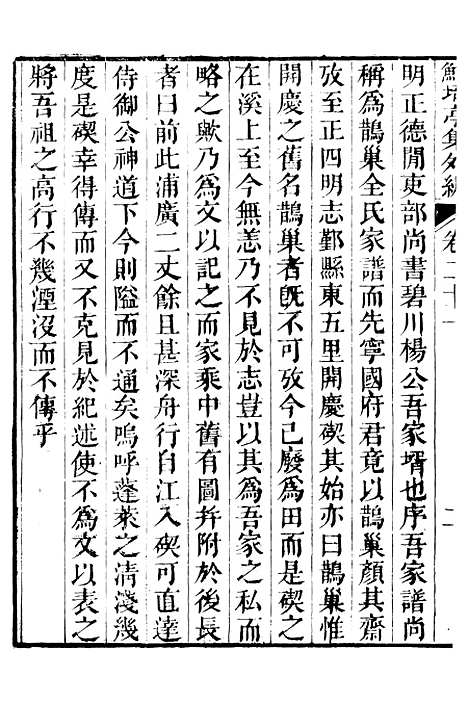 鮚埼亭集外編 卷二十一 二
明正德閒吏部尚書碧川楊公吾家壻也序吾家譜尚
稱爲鵲巢全氏家譜而先寧國府君竟以鵲巢顏其齋
攷至正四明志鄞縣東五里開慶碶其始亦曰鵲巢惟
開慶之舊名鵲巢者旣不可攷今已廢爲田而是碶之
在溪上至今無恙乃不見於志豈以其爲吾家之私而
略之歟乃爲文以記之而家乘中舊有圖幷附於後長
者曰前此浦廣二丈餘且甚深舟行自江入碶可直達
侍御公神道下今則隘而不通矣嗚呼蓬萊之清淺幾
度是碶幸得傳而又不克見於紀述使不爲文以表之
將吾祖之高行不幾湮沒而不傳乎